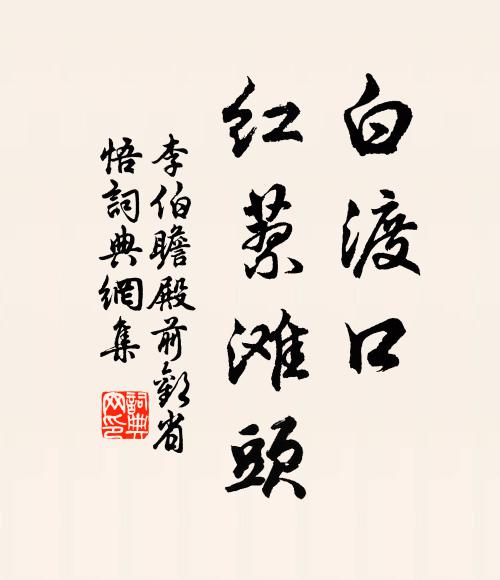 白渡口
红蓼滩頭
李伯瞻殿前歡省
悟詞典網集
詞典网印